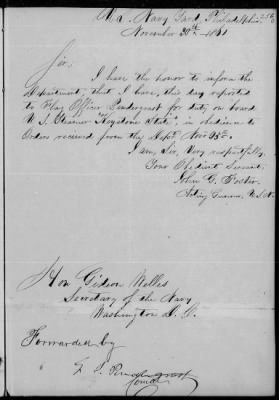 U.S. Navy Yard, Philadelphia
November 30th 1861
Sir,
I have the honor to inform the
Department, that I have, this day reported
to Flag Officer Pendergrast for duty, on board
U.S. Steamer "Keystone State", in obedience to
Orders received from the Dept Nov 25th.
I am, Sir, Very respectfully,
Your Obedient Servant,
John G. Foster
Acting Gunner, U.S.N.
Hon Gideon Welles
Secretary of the Navy
Washington D.C.
Forwarded by
Pendergrast
Comdt